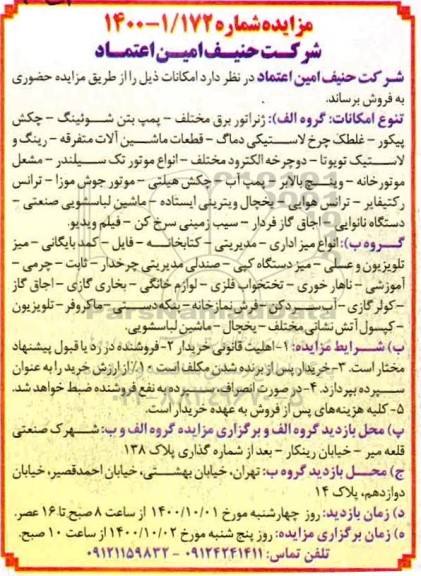 مزایده شماره ۱/۱۷۲-۱۴۰۰
شرکت حنیف امین اعتماد
شرکت حنیف امین اعتماد در نظر دارد امکانات ذیل را از طریق مزایده حضوری
به فروش برساند.
تنوع امکانات: گروه الف): ژنراتور برق مختلف - پمپ بتن شوتینگ - چکش
پیکور - غلطک چرخ لاستیکی دماگ - قطعات ماشین آلات متفرقه - رینگ و
لاستیک تویوتا - دوچرخه الکترود مختلف - انواع موتور تک سیلندر - مشعل
موتورخانه - وینچ بالابر - پمپ آب - چکش هیلتی - موتور جوش موزا - ترانس
رکتیفایر - ترانس هوایی - یخچال ویترینی ایستاده - ماشین لباسشویی صنعتی -
دستگاه نانوایی - اجاق گاز فردار - سیب زمینی سرخ کن - فیلم ویدیو.
گروه ب): انواع میز اداری - مدیریتی - کتابخانه - فایل - کمد بایگانی - میز
تلویزیون و عسلی - میز دستگاه کپی - صندلی مدیریتی چرخدار - ثابت - چرمی -
آموزشی - ناهار خوری - تختخواب فلزی - لوازم خانگی - بخاری گازی - اجاق گاز
- کولر گازی - آب سرد کن - فرش نمازخانه - پنکه دستی - ماکروفر - تلویزیون
- کپسول آتش نشانی مختلف - یخچال - ماشین لباسشویی.
ب) شرایط مزایده: ۱- اهلیت قانونی خریدار ۲- فروشنده در رد یا قبول پیشنهاد
مختار است. ۳- خریدار پس از برنده شدن مکلف است ۱۰٪ از ارزش خرید را به عنوان
سپرده بپردازد. ۴- در صورت انصراف سپرده به نفع فروشنده ضبط خواهد شد.
۵- کلیه هزینه‌های پس از فروش به عهده خریدار است.
پ) محل بازدید گروه الف و برگزاری مزایده گروه الف و ب: شهرک صنعتی
قلعه میر - خیابان رینکار - بعد از شماره گذاری پلاک ۱۳۸
ج) محل بازدید گروه ب: تهران، خیابان بهشتی، خیابان احمدقصیر، خیابان
دوازدهم، پلاک ۱۴
د) زمان بازدید: روز چهارشنبه مورخ ۱۴۰۰/۱۰/۰۱ از ساعت ۸ صبح تا ۱۶ عصر.
ه) زمان برگزاری مزایده: روز پنج شنبه مورخ ۱۴۰۰/۱۰/۰۲ از ساعت ۱۰ صبح.
تلفن تماس: ۰۹۱۲۴۲۴۱۴۱۱ - ۰۹۱۲۱۱۵۹۸۳۲